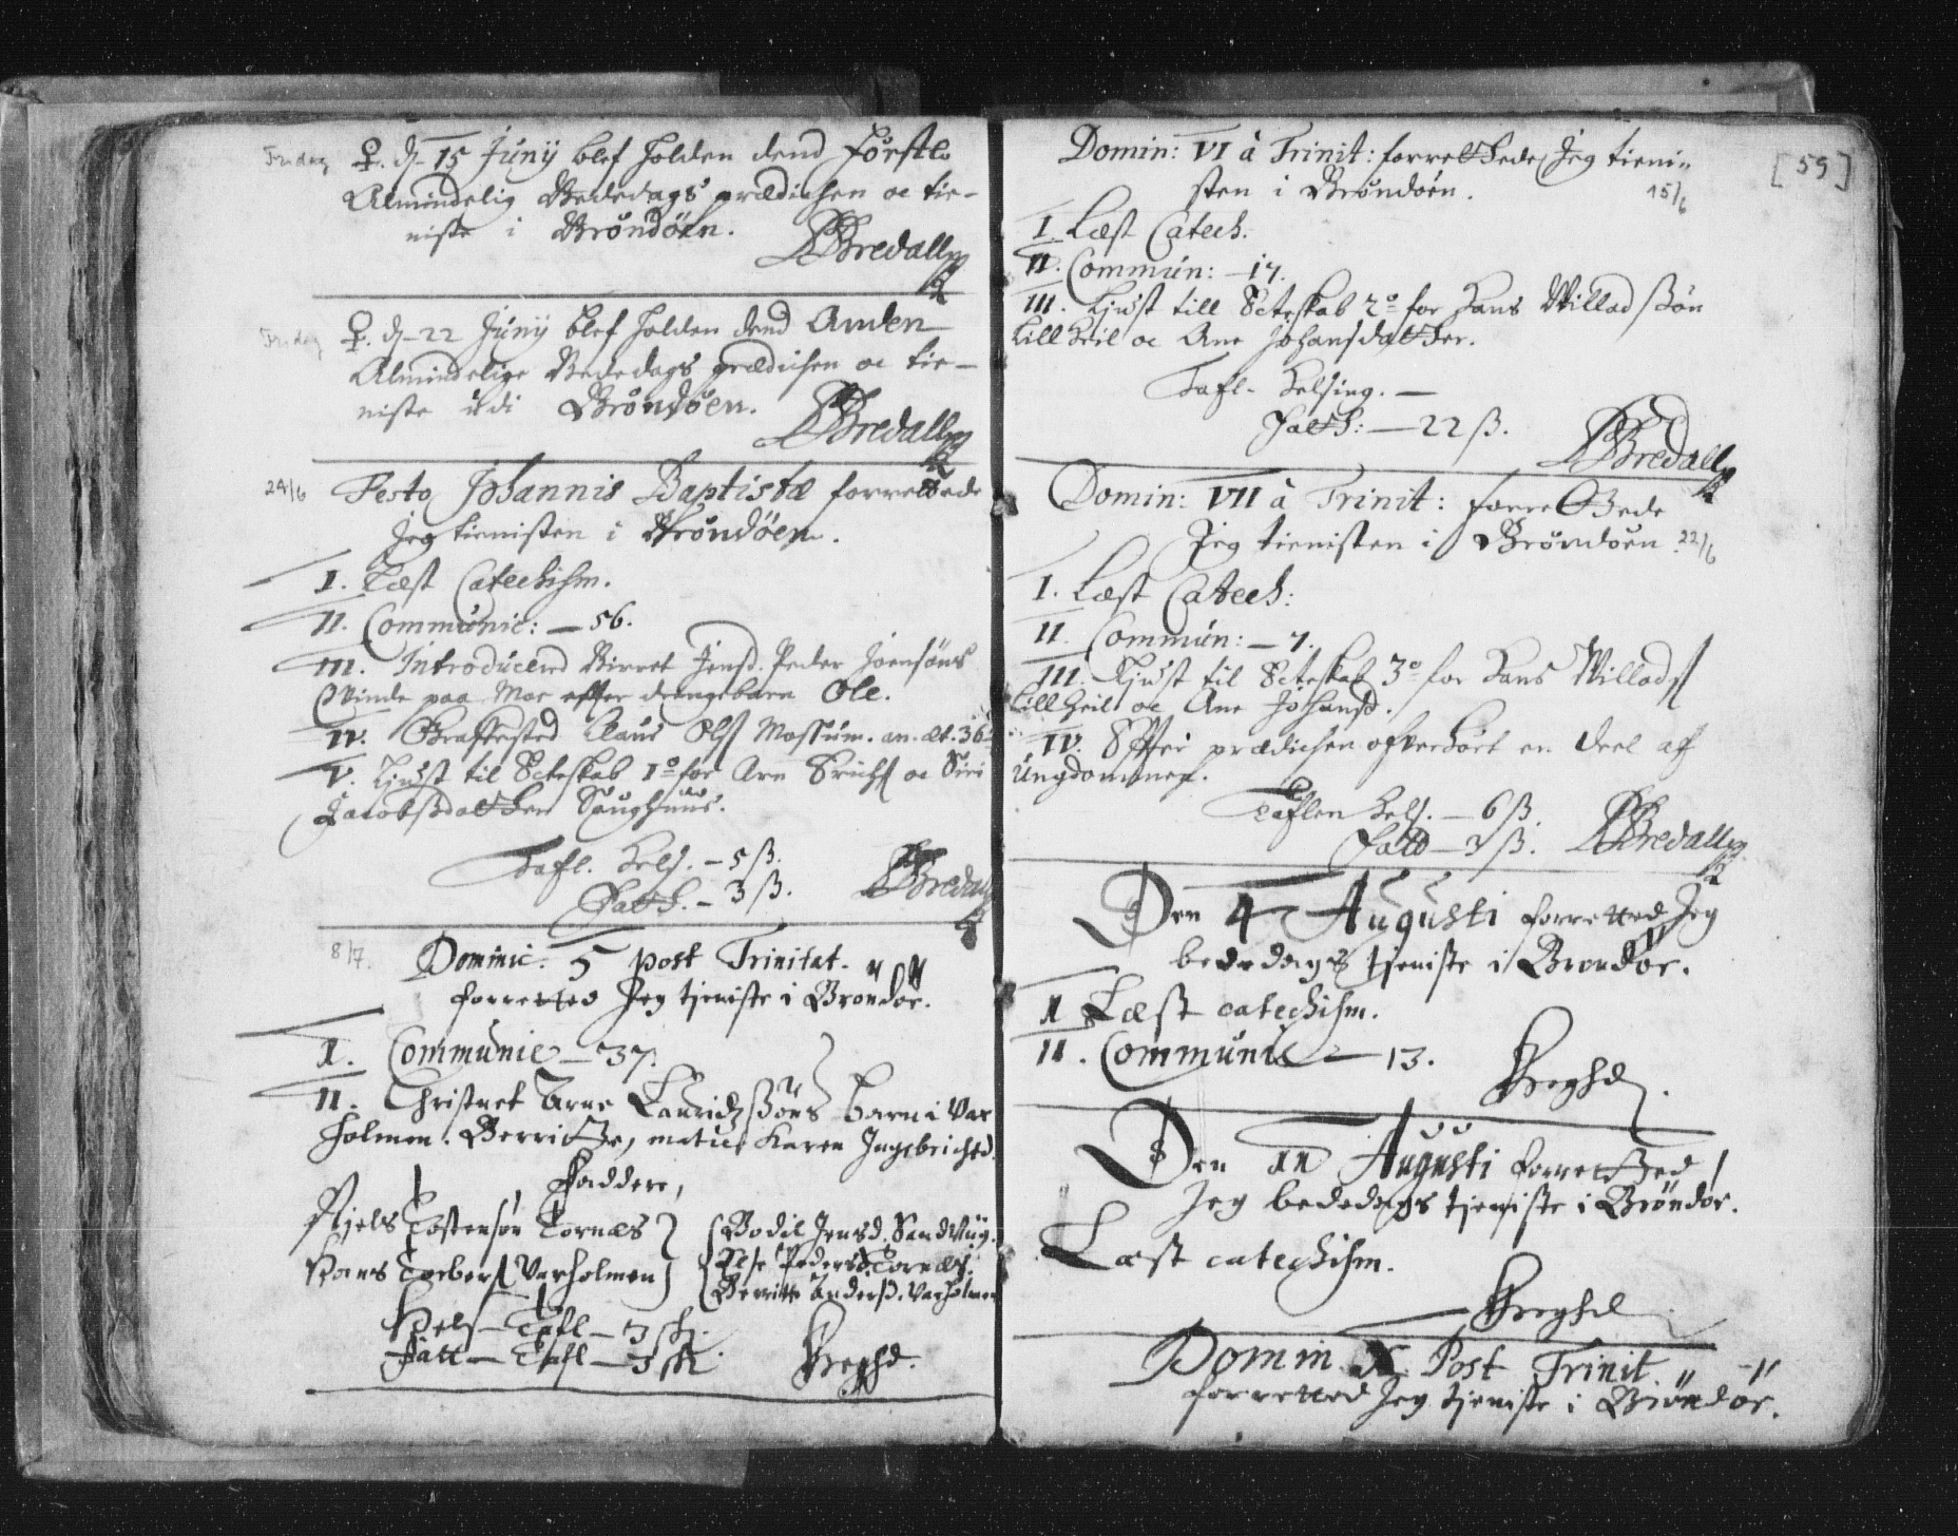 Fredag ♀. d. 15 Junij blef holden dend Første
Almindelig Bededags prædichen oc tie-
niste i Brøndöen.
Bredall
Fredag ♀. d. 22 Junij blef holden dend Anden
Almindelige Bededags prædichen oc tie-
niste udi Brøndöen.
Bredall
24/6 Festo Johannis Baptistæ forrettede
Jeg tienisten i Brøndöen.
I. Læst Catechism.
II. Communic: – 56.
III. Introducered Birret Jensd. Peder Joensöns
Qvinde paa Moe efter drengebarn Ole.
IV. Graffested Claus Ols Mossum. an. æt. 36
V. Liust til Ecteskab 1º for Arn Erichs oc Siri
Jacobsdatther Saughuus.
Tafl. Hels. – 5 ß.
Fatt. – 3 ß.
Bredall
8/7. Dominic. 5 post Trinitat.
forretted Jeg tjeniste i Brøndøe.
I. Communic – 37.
II. Christnet Arne Lauridßöns barn i Var
holmen. Berritthe, mater Karen Ingebrichtd.
Faddere,
Njels Tostensøn Tornæs } { Bodil Jensd. Sandvug.
Hans Torbers Varholmen } { Else Pedersd. Tornæs.
{ Berritte Andersd. Varholmen
Hels – Tafl – 3 sk.
Fatt – Tafl – 3 sk
[59]
Domin: VI à Trinit: forretthede Jeg tieni-
sten i Brøndöen. 15/6
I. Læst Catech.
II. Commun: – 17.
III. Liust till Ecteskab 2º for Hans Willadßön
Lillheil oc Ane Johansdatther.
Tafl. Helsing. –
Fatth: – 22 ß.
Bredall
Domin: VII à Trinit: forretthede
Jeg tienisten i Brøndöen. 22/6
I. Læst Catech:
II. Commun: – 7.
III. Liust til Ecteskab 3º for Hans Willads
Lillheil oc Ane Johansd.
IV. Efter prædichen ofverhört en deel aff
Ungdommen.
Taflen Hels. – 6 ß.
Fatt – 3 ß.
Bredall
Den 4 Augusti forretted Jeg
bededags tjeniste i Brøndøe.
I Læst catechism.
II. Communic – 13.
Den 11 Augusti forretthed
Jeg bededags tjeniste i Brøndøe.
Læst catechism.
Domin. X Post Trinit
forretted Jeg tjeniste i Brøndøe.